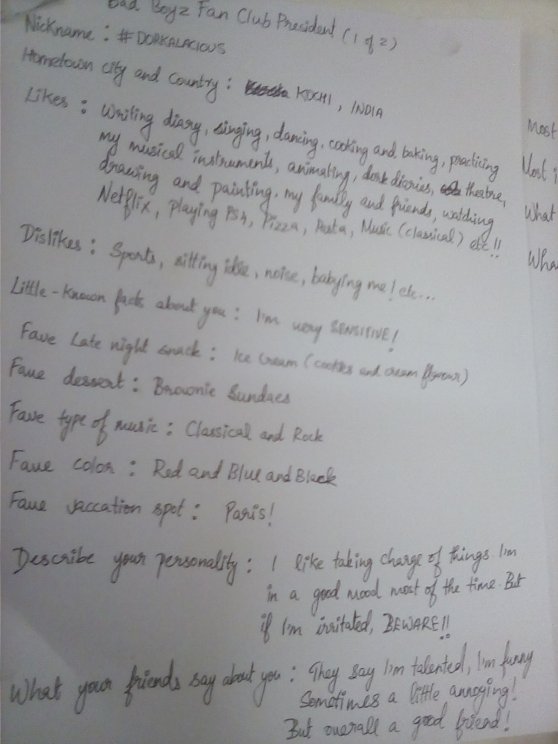 Bad Boyz Fan Club President (1 of 2)
Nickname : # DORKALACIOUS
Hometown city and Country : KOCHI, INDIA
Likes : Writing diary, singing, dancing, cooking and baking, practicing
my musical instruments, animating, dork diaries, theatre,
drawing and painting, my family and friends, watching
Netflix, Playing PS4, Pizza, Pasta, Music (classical) etc!!
Dislikes : Sports, sitting idle, noise, babying me! etc...
Little-Known facts about you : I'm very SENSITIVE!
Fave Late night snack : Ice Cream (cookies and cream flavour)
Fave dessert : Brownie Sundaes
Fave type of music : Classical and Rock
Fave color : Red and Blue and Black
Fave vaccation spot : Paris!
Describe your personality : I like taking charge of things. I'm
in a good mood most of the time. But
if I'm irritated, BEWARE!!
What your friends say about you : They say I'm talented, I'm funny
Sometimes a little annoying!
But overall a good friend!
Most
Most i
What
Wha